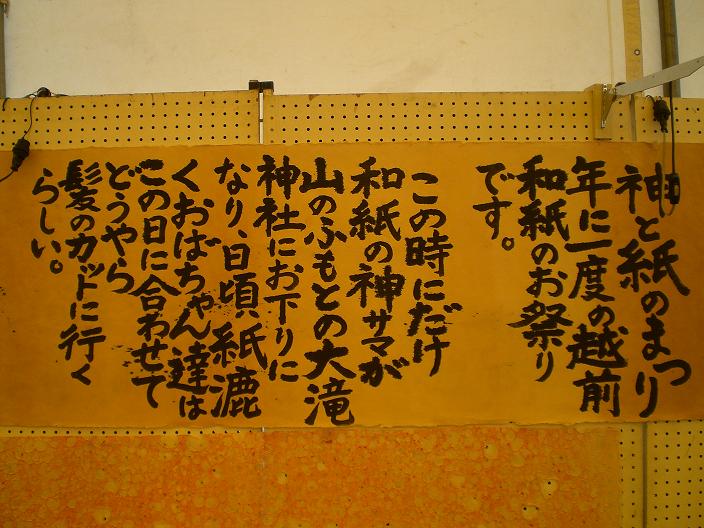 神と紙のまつり
年に一度の越前
和紙のお祭り
です。
この時にだけ
和紙の神サマが
山のふもとの大滝
神社にお下りに
なり、日頃紙漉
くおばちゃん達は
この日に合わせて
どうやら
髪のカットに行く
らしい。